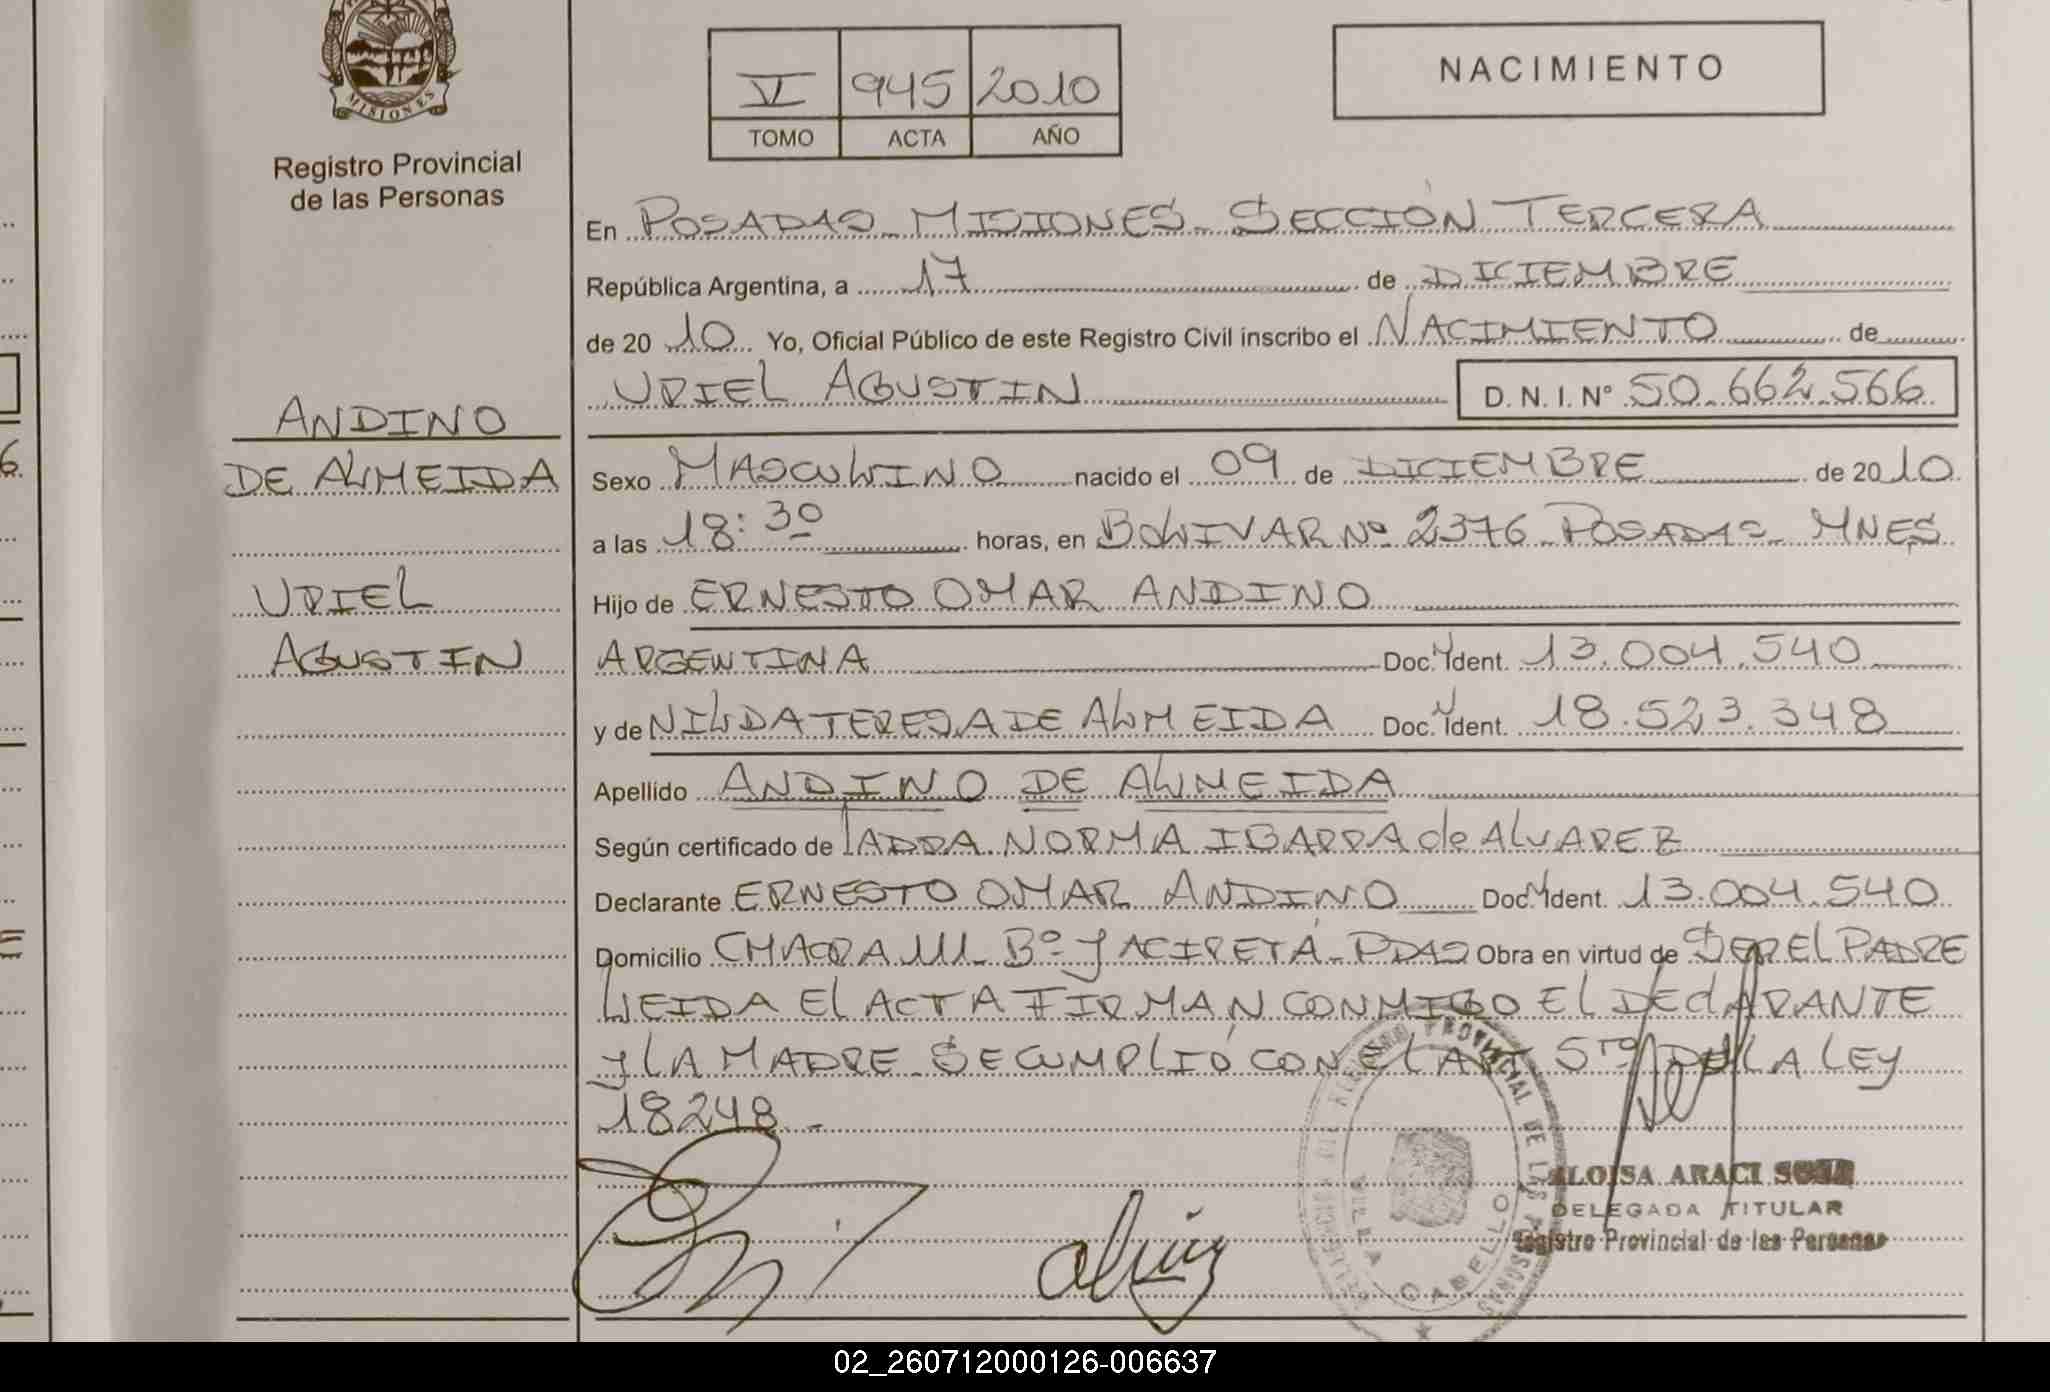 MISIONES
Registro Provincial
de las Personas
V 945 2010
TOMO ACTA AÑO
NACIMIENTO
En POSADAS MISIONES SECCIÓN TERCERA
República Argentina, a 17 de DICIEMBRE
de 20 10 Yo, Oficial Público de este Registro Civil inscribo el NACIMIENTO de
URIEL AGUSTIN D. N. I. Nº 50.662.566
ANDINO
DE ALMEIDA
URIEL
AGUSTIN
Sexo MASCULINO nacido el 09 de DICIEMBRE de 2010
a las 18:30 horas, en BOLIVAR Nº 2376 POSADAS MNES
Hijo de ERNESTO OMAR ANDINO
ARGENTINA Doc. Ident. 13.004.540
y de NILDA TERESA DE ALMEIDA Doc. Ident. 18.523.348
Apellido ANDINO DE ALMEIDA
Según certificado de NORMA IBARRA de ALVAREZ
Declarante ERNESTO OMAR ANDINO Doc. Ident. 13.004.540
Domicilio CHACRA 111 Bº YACIRETÁ - PDAS Obra en virtud de SER EL PADRE
LEIDA EL ACTA FIRMAN CONMIGO EL DECLARANTE
Y LA MADRE SE CUMPLIÓ CON EL ART 5TO DE LA LEY
18248 -
REGISTRO PROVINCIAL DE LAS PERSONAS
VILLA CABELLO
ALOISA ARACI
DELEGADA TITULAR
Registro Provincial de las Personas
02_260712000126-006637